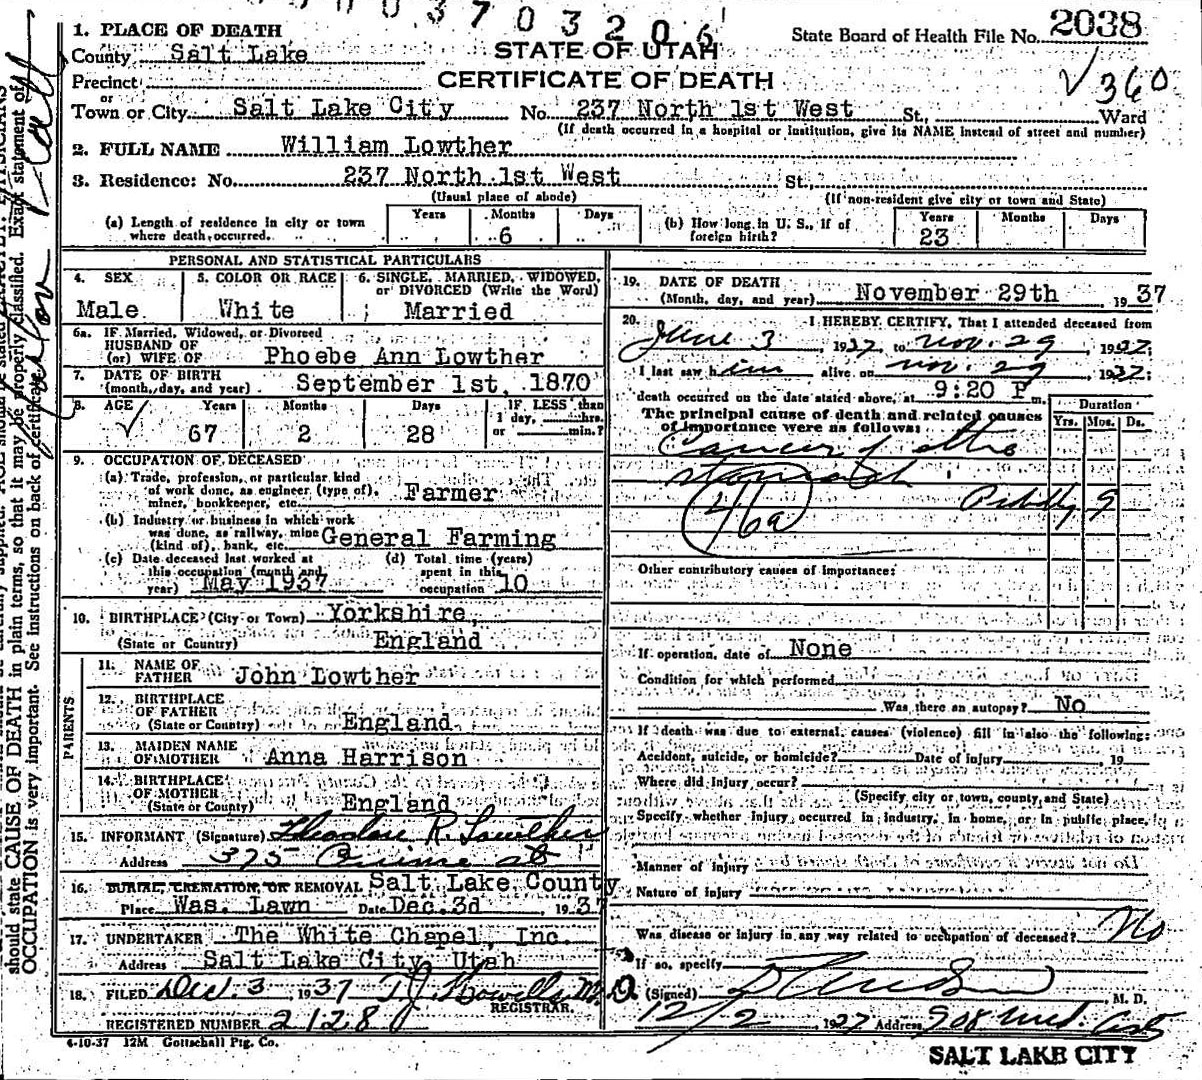 0 3 7 0 3 2 0 6
2038
State Board of Health File No.
1. PLACE OF DEATH
STATE OF UTAH
County Salt Lake
CERTIFICATE OF DEATH
√ 360
Precinct
or
Town or City Salt Lake City No. 237 North 1st West St., Ward
(If death occurred in a hospital or institution, give its NAME instead of street and number)
2. FULL NAME William Lowther
3. Residence: No. 237 North 1st West St.,
(Usual place of abode) (If non-resident give city or town and State)
(a) Length of residence in city or town where death occurred. Years Months 6 Days
(b) How long in U. S., if of foreign birth? Years 23 Months Days
PERSONAL AND STATISTICAL PARTICULARS
4. SEX Male
5. COLOR OR RACE White
6. SINGLE, MARRIED, WIDOWED, or DIVORCED (Write the Word) Married
6a. IF Married, Widowed, or Divorced
HUSBAND OF
(or) WIFE OF Phoebe Ann Lowther
7. DATE OF BIRTH
(month, day, and year) September 1st, 1870
8. AGE Years 67 Months 2 Days 28 IF LESS than 1 day, hrs. or min.?
9. OCCUPATION OF DECEASED
(a) Trade, profession, or particular kind
of work done, as engineer (type of),
miner, bookkeeper, etc. Farmer
(b) Industry or business in which work
was done, as railway, mine
(kind of), bank, etc. General Farming
(c) Date deceased last worked at
this occupation (month and
year) May 1937
(d) Total time (years)
spent in this
occupation 10
10. BIRTHPLACE (City or Town) Yorkshire,
(State or Country) England
PARENTS
11. NAME OF
FATHER John Lowther
12. BIRTHPLACE
OF FATHER
(State or Country) England
13. MAIDEN NAME
OF MOTHER Anna Harrison
14. BIRTHPLACE
OF MOTHER
(State or County) England
15. INFORMANT (Signature) R. Lowther
Address 375
16. BURIAL, CREMATION, OR REMOVAL Salt Lake County
Place Was. Lawn Date Dec. 3d, 1937
17. UNDERTAKER The White Chapel, Inc.
Address Salt Lake City, Utah
18. FILED Dec. 3 1937 T. J. Howells M.D.
REGISTRAR.
REGISTERED NUMBER 2128
4-10-37 12M Gottschall Ptg. Co.
19. DATE OF DEATH
(Month, day, and year) November 29th, 1937
20. I HEREBY CERTIFY, That I attended deceased from
June 3, 1937, to Nov. 29, 1937;
I last saw him alive on Nov. 29, 1937;
death occurred on the date stated above, at 9:20 P m.
The principal cause of death and related causes
of importance were as follows:
Duration
Yrs. Mos. Ds.
Cancer of the
stomach
46a 9
Other contributory causes of importance:
If operation, date of None
Condition for which performed
Was there an autopsy? No
If death was due to external causes (violence) fill in also the following:
Accident, suicide, or homicide? Date of injury 19
Where did injury occur?
(Specify city or town, county, and State)
Specify whether injury occurred in industry, in home, or in public place,
Manner of injury
Nature of injury
Was disease or injury in any way related to occupation of deceased? No
If so, specify
(Signed) M. D.
12/2 1937 Address
SALT LAKE CITY
should state CAUSE OF DEATH in plain terms, so that it may be properly classified. Exact statement of
OCCUPATION is very important. See instructions on back of certificate.